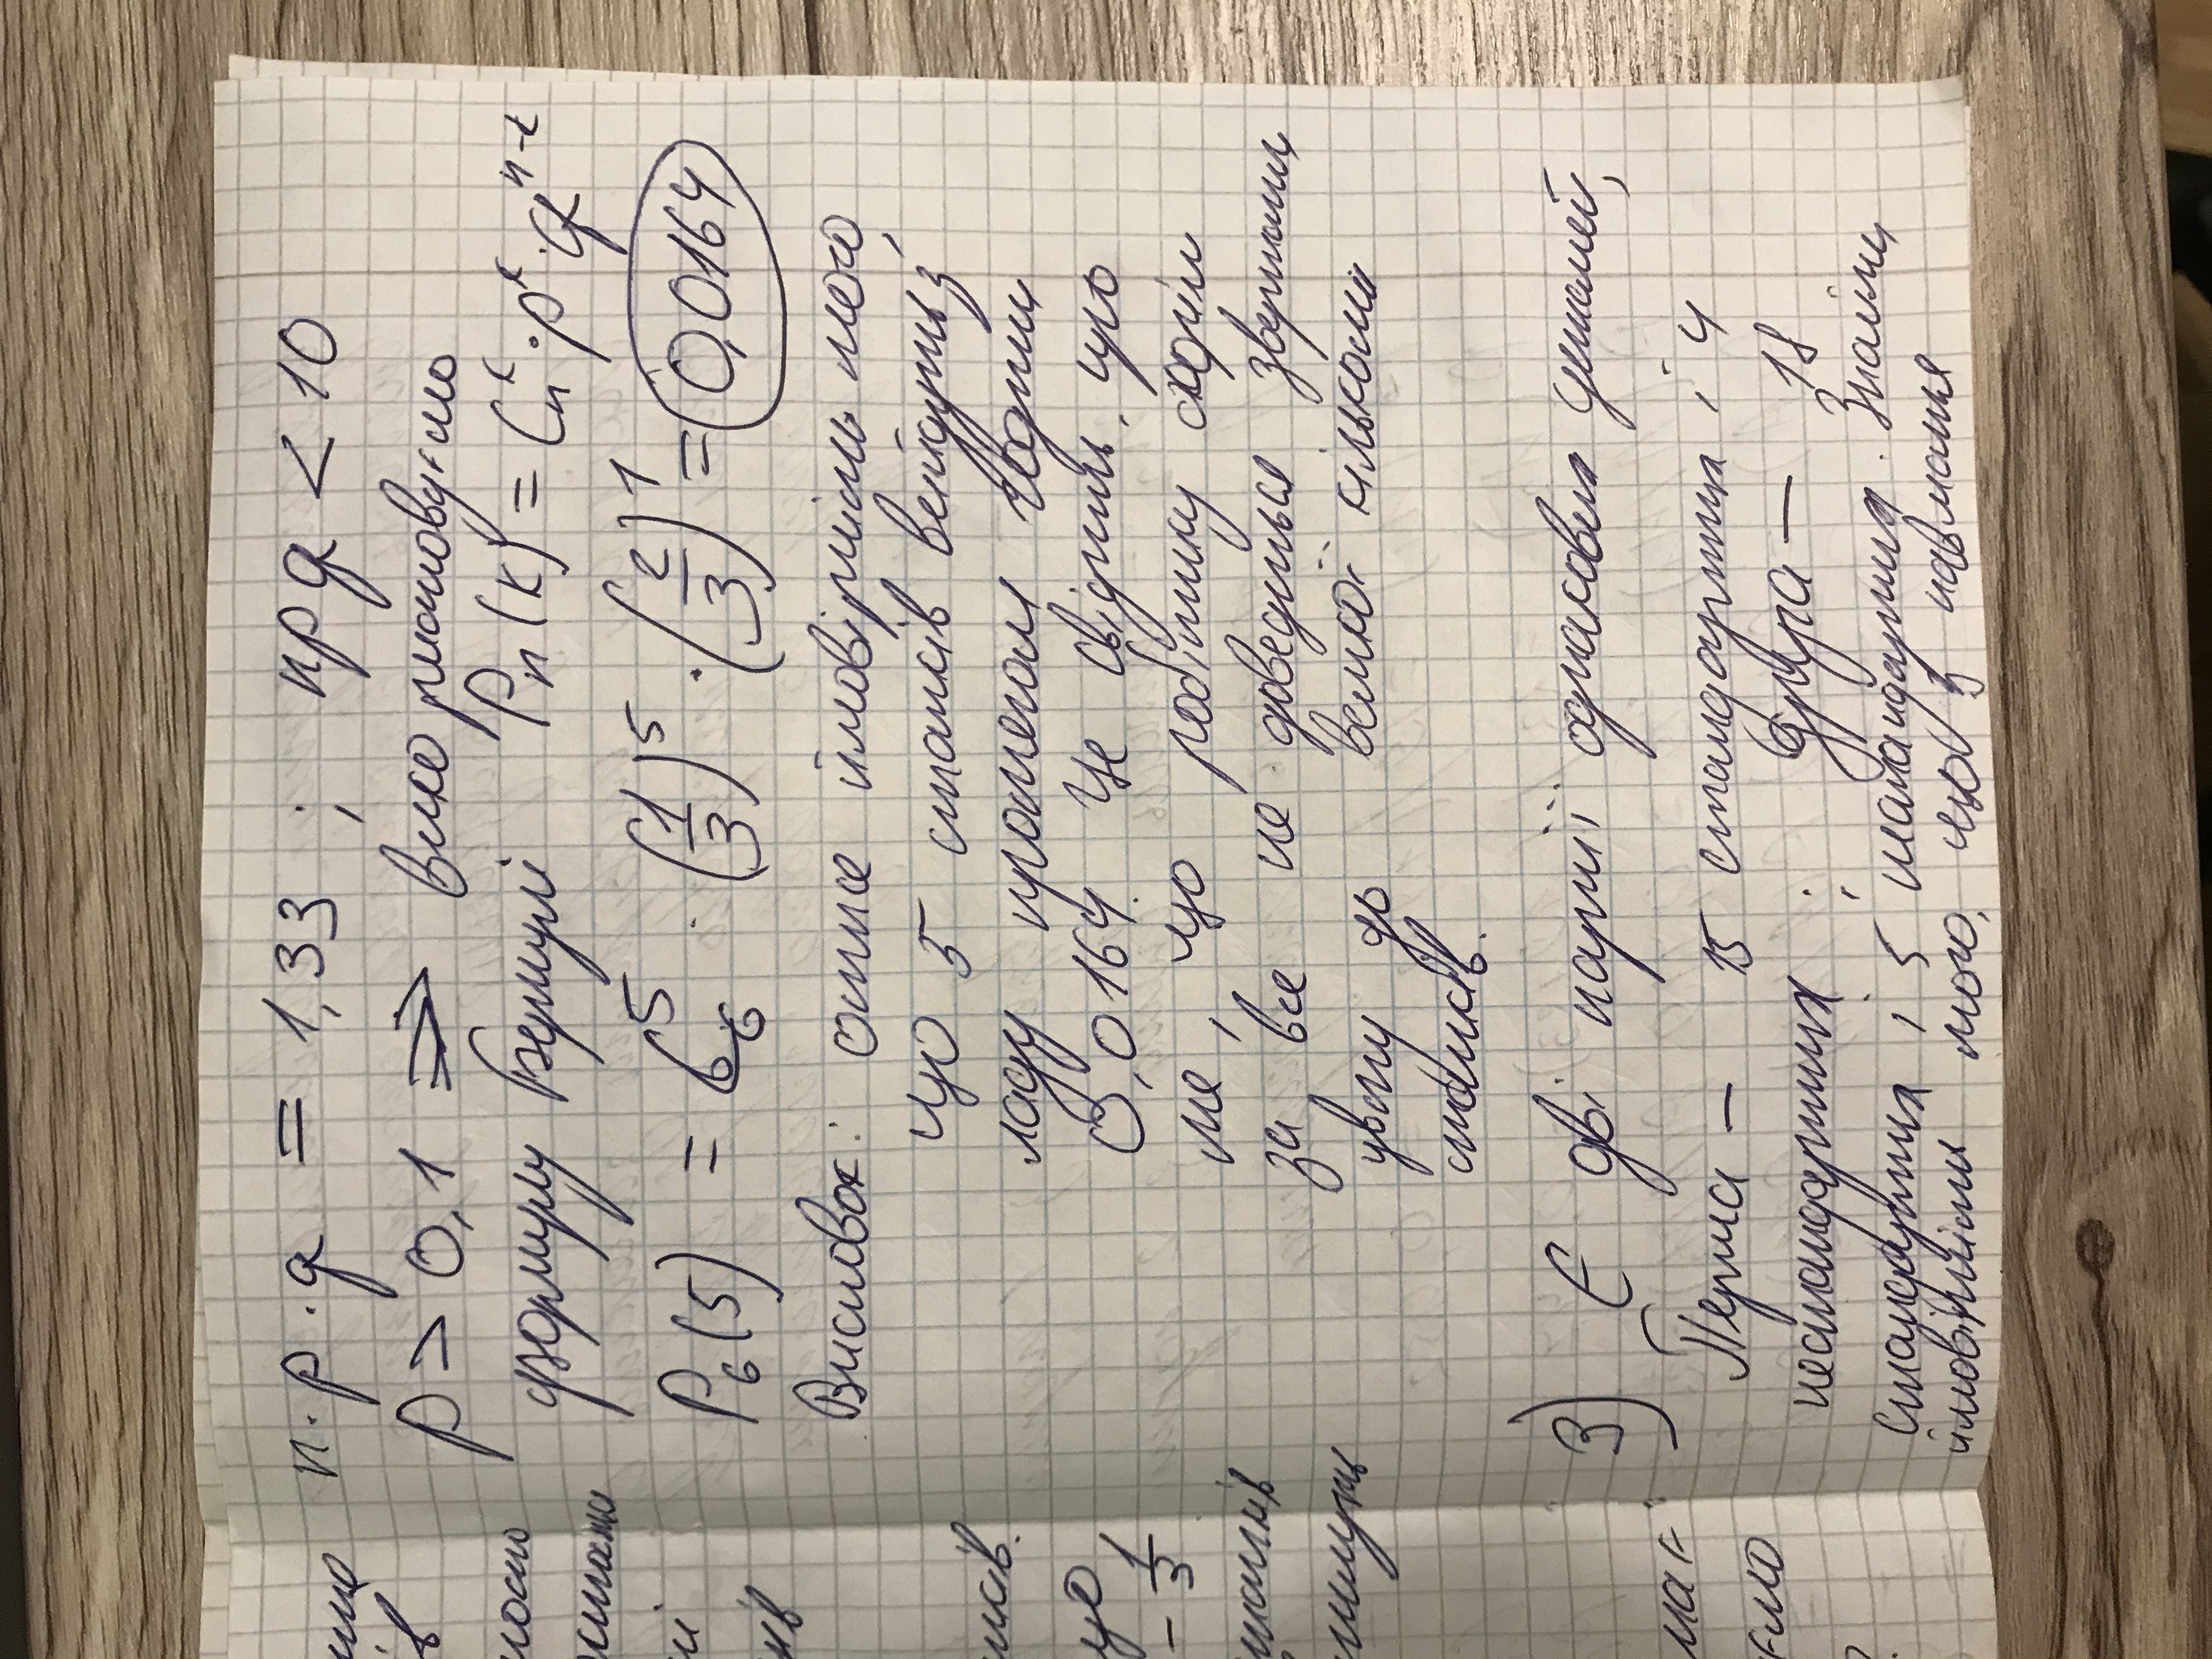 n·p·q = 1,33 ; npq < 10
p > 0,1 ⇒ використовуємо
формулу Бернулі Pₙ(k) = Cₙᵏ·pᵏ·qⁿ⁻ᵏ
P₆(5) = C₆⁵ · (1/3)⁵ · (2/3)¹ = 0,0164
Висновок: отже ймовірність того,
що 5 станків вийдуть з
ладу протягом години
0,0164. Це свідчить про
те, що робітнику скоріш
за все не доведеться звертати
увагу до великої кількості
станків.
3) Є дві партії однакових деталей,
Перша – 15 стандартних і 4
нестандартних ; друга – 18
стандартних і 5 нестандартних. Знайти
ймовірність того, що з навмання
ів
ків.
що
– 1/3
має
ємо